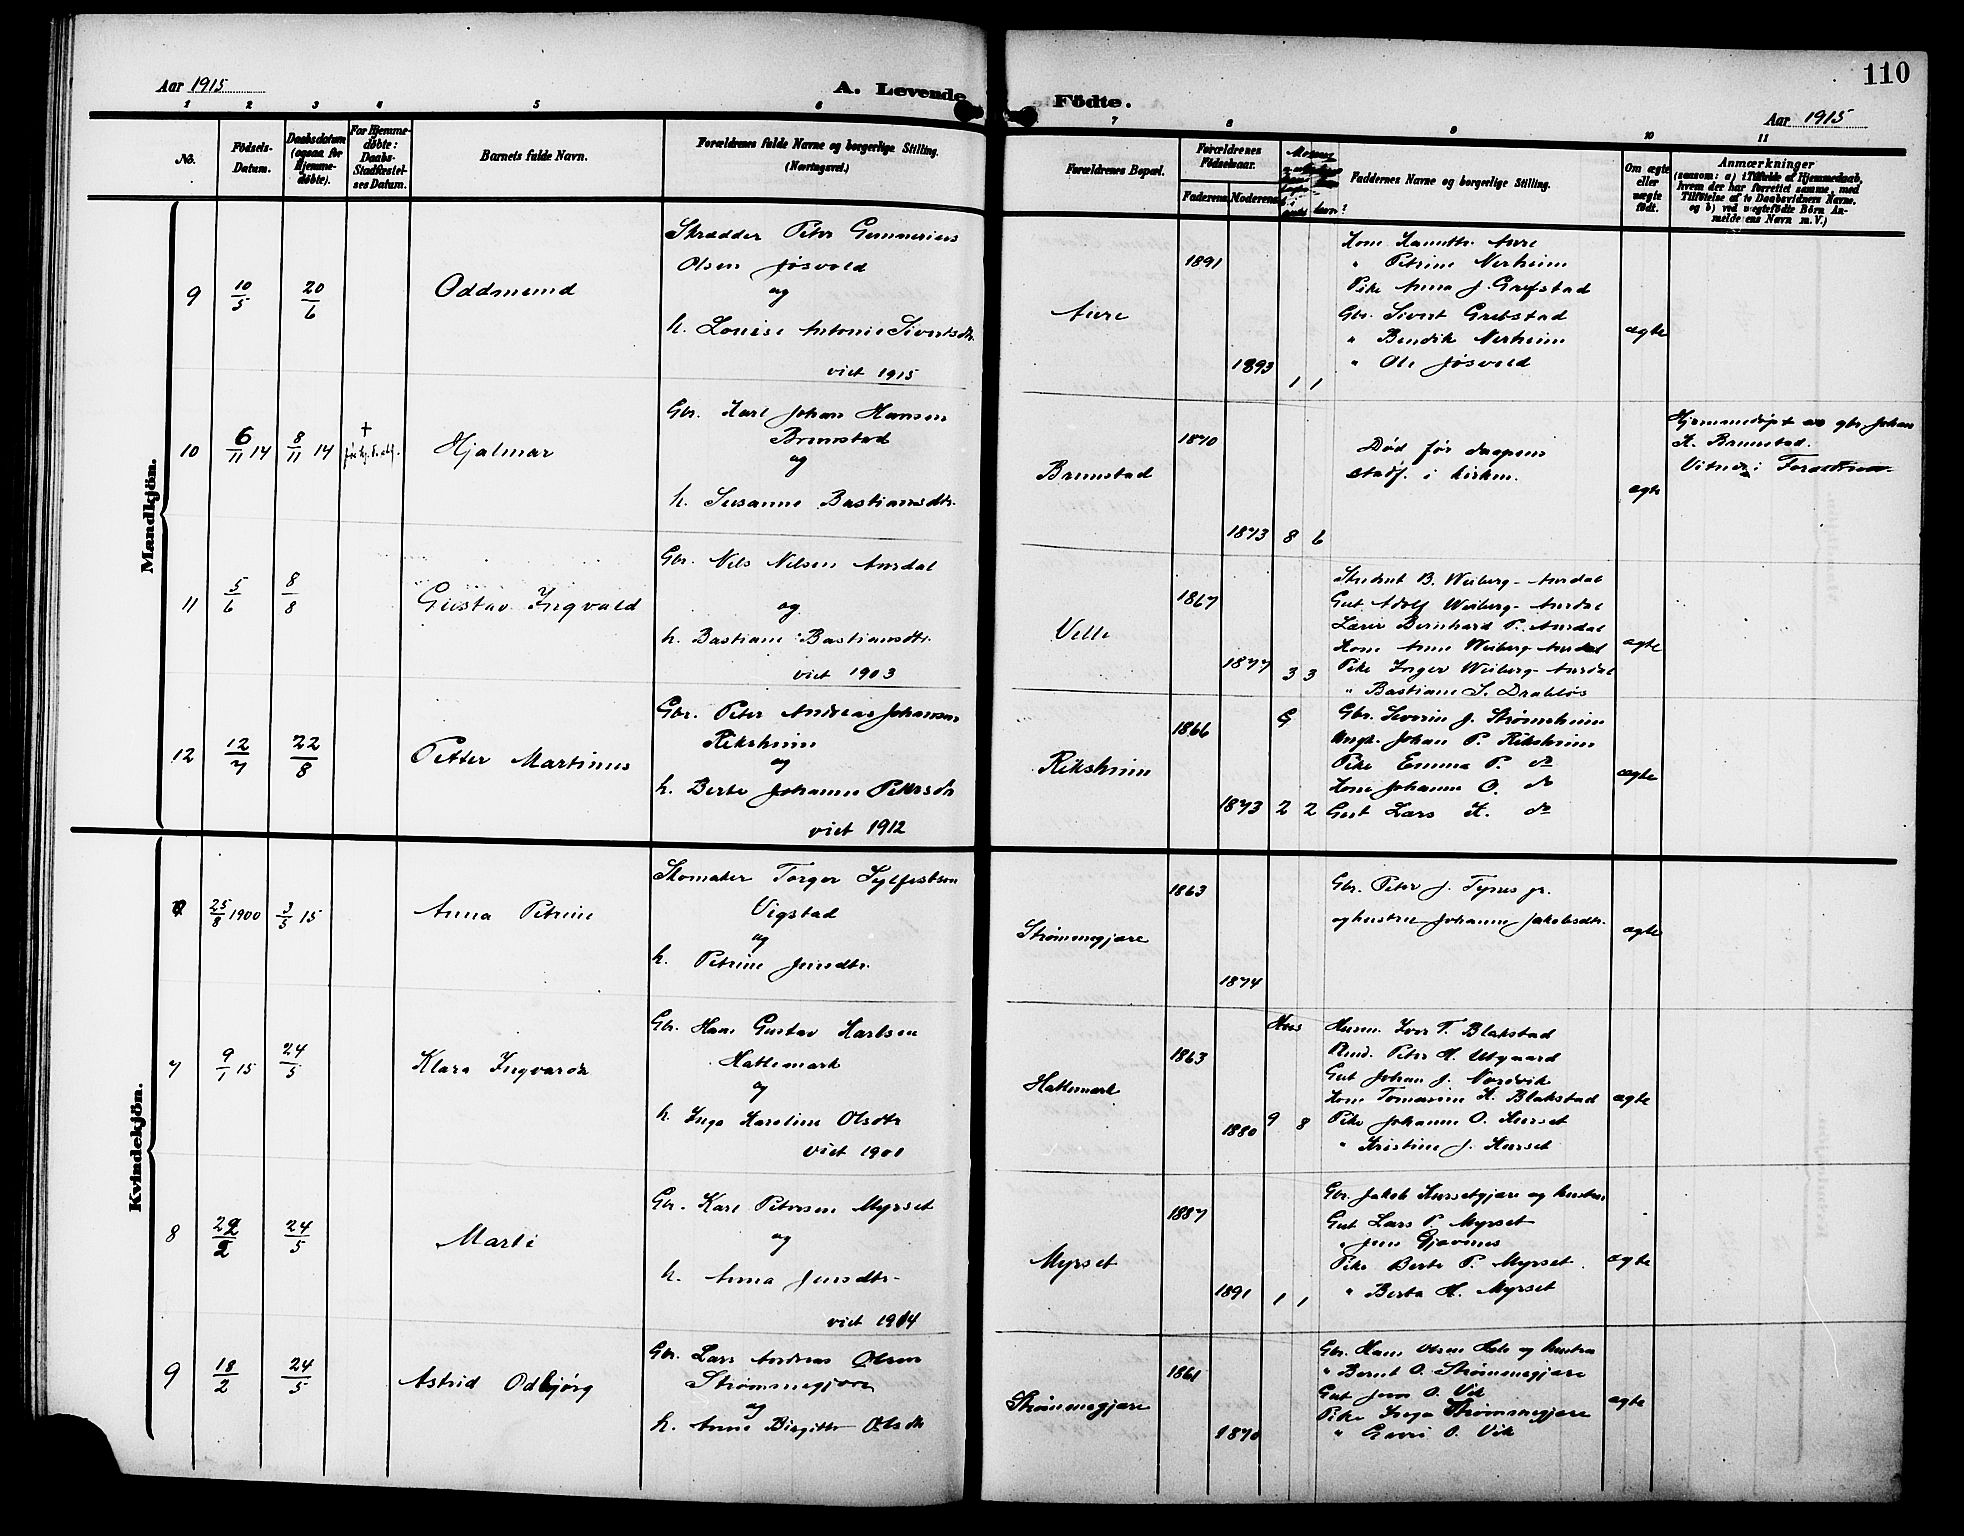 110
Aar 1915
A. Levende Födte.
Aar 1915
1 2 3 4 5 6 7 8 9 10 11
No.
Födsels-
Datum.
Daabsdatum
(ogsaa for
Hjemme-
døbte).
For Hjemme-
døbte:
Daabs-
Stadfæstel-
ses Datum.
Barnets fulde Navn.
Forældrenes fulde Navne og borgerlige Stilling.
(Næringsvei.)
Forældrenes Bopæl.
Forældrenes
Födselsaar.
Faderens
Moderens
Faddernes Navne og borgerlige Stilling.
Om ægte
eller
uægte
født.
Anmærkninger
(saasom: a) i Tilfælde af Hjemmedaab,
hvem der har forrettet samme, med
Tilføielse af to Daabsvidners Navne,
og b) ved uægtefødte Børn An-
melderens Navn m. V.)
Mandkjön.
9 10/5 20/6 Oddmund
Skrædder Peter Gunnerius
Olsen Jøsvold
og
h. Louise Antonie Sivertsdtr.
viet 1915
Aure 1891 1893 1 1
Kone Aure
" Petrine Nerheim
Pike Anna J.
Gbr. Sivert Grebstad
" Bendik Nerheim
" Ole Jøsvold
ægte
10 6/11 14 8/11 14 † Hjalmar
Gbr. Karl Johan Hansen
Brunstad
og
h. Susanne Bastiansdtr.
Brunstad 1870 1873 8 6
Død før daapens
stadf. i kirken.
ægte
Hjemmedøpt av gbr. Johan
K. Brunstad.
Vitner:
11 5/6 8/8 Gustav Ingvald
Gbr. Nels Nilsen Aursdal
og
h. Bastiane Bastiansdtr.
viet 1903
Velle 1867 1877 3 3
Student B. Weiberg-Aurdal
Gut Adolf Weiberg-Aurdal
Lærer Bernhard P. Aurdal
Kone Anne Weiberg Aurdal
Pike Inger Weiberg-Aurdal
" Bastiane S. Drabløs
ægte
12 12/7 22/8 Petter Martinus
Gbr. Peter Andreas Johansen
Riksheim
og
h. Berte Johanne Petersdtr
viet 1912
Riksheim 1866 1873 G 2 2
Gbr. Severin J. Strømsheim
Ungk. Johan P. Riksheim
Pike Emma P. do
Kone Johanne O. do
Gut Lars K. do
ægte
Kvindekjön.
25/8 1900 3/5 15 Anna Petrine
Skomaker Torger Sylfestsen
Vigstad
og
h. Petrine Jensdtr.
Strømmegjære 1863 1874
Gbr. Peter J. Tynes jr.
og hustru Johanne Jakobsdtr.
ægte
7 9/1 15 24/5 Klara Ingvarda
Gbr. Hans Gustav Karlsen
Hatlemark
og
h. Inga Karoline Olsdtr
viet 1901
Hatlemark 1863 1880 9 8
Husm. Ivar T. Blakstad
Peter H. Utgaard
Gut Johan J. Nordvik
Kone Tomasine K. Blakstad
Pike Johanne O. Hurset
" Kristine J. Hurset
ægte
8 22/2 24/5 Marte
Gbr. Karl Petersen Myrset
og
h. Anna Jensdtr.
viet 1914
Myrset 1887 1891 1 1
Gbr. Jakob Hursetgjære og hustru
Gut Lars P. Myrset
" Jens Gjævenes
Pike Berte P. Myrset.
" Berta H. Myrset
ægte
9 18/2 24/5 Astrid Odbjørg
Gbr. Lars Andreas Olsen
Strømmegjære
og
h. Anne Birgitte Olsdtr
Strømmegjære 1861 1870
Gbr. Hans Olsen Hole og hustru
" Bernt O. Strømmegjære
Gut Jens O. Vik
Pike Inga Strømmegjære
" O. Vik
ægte